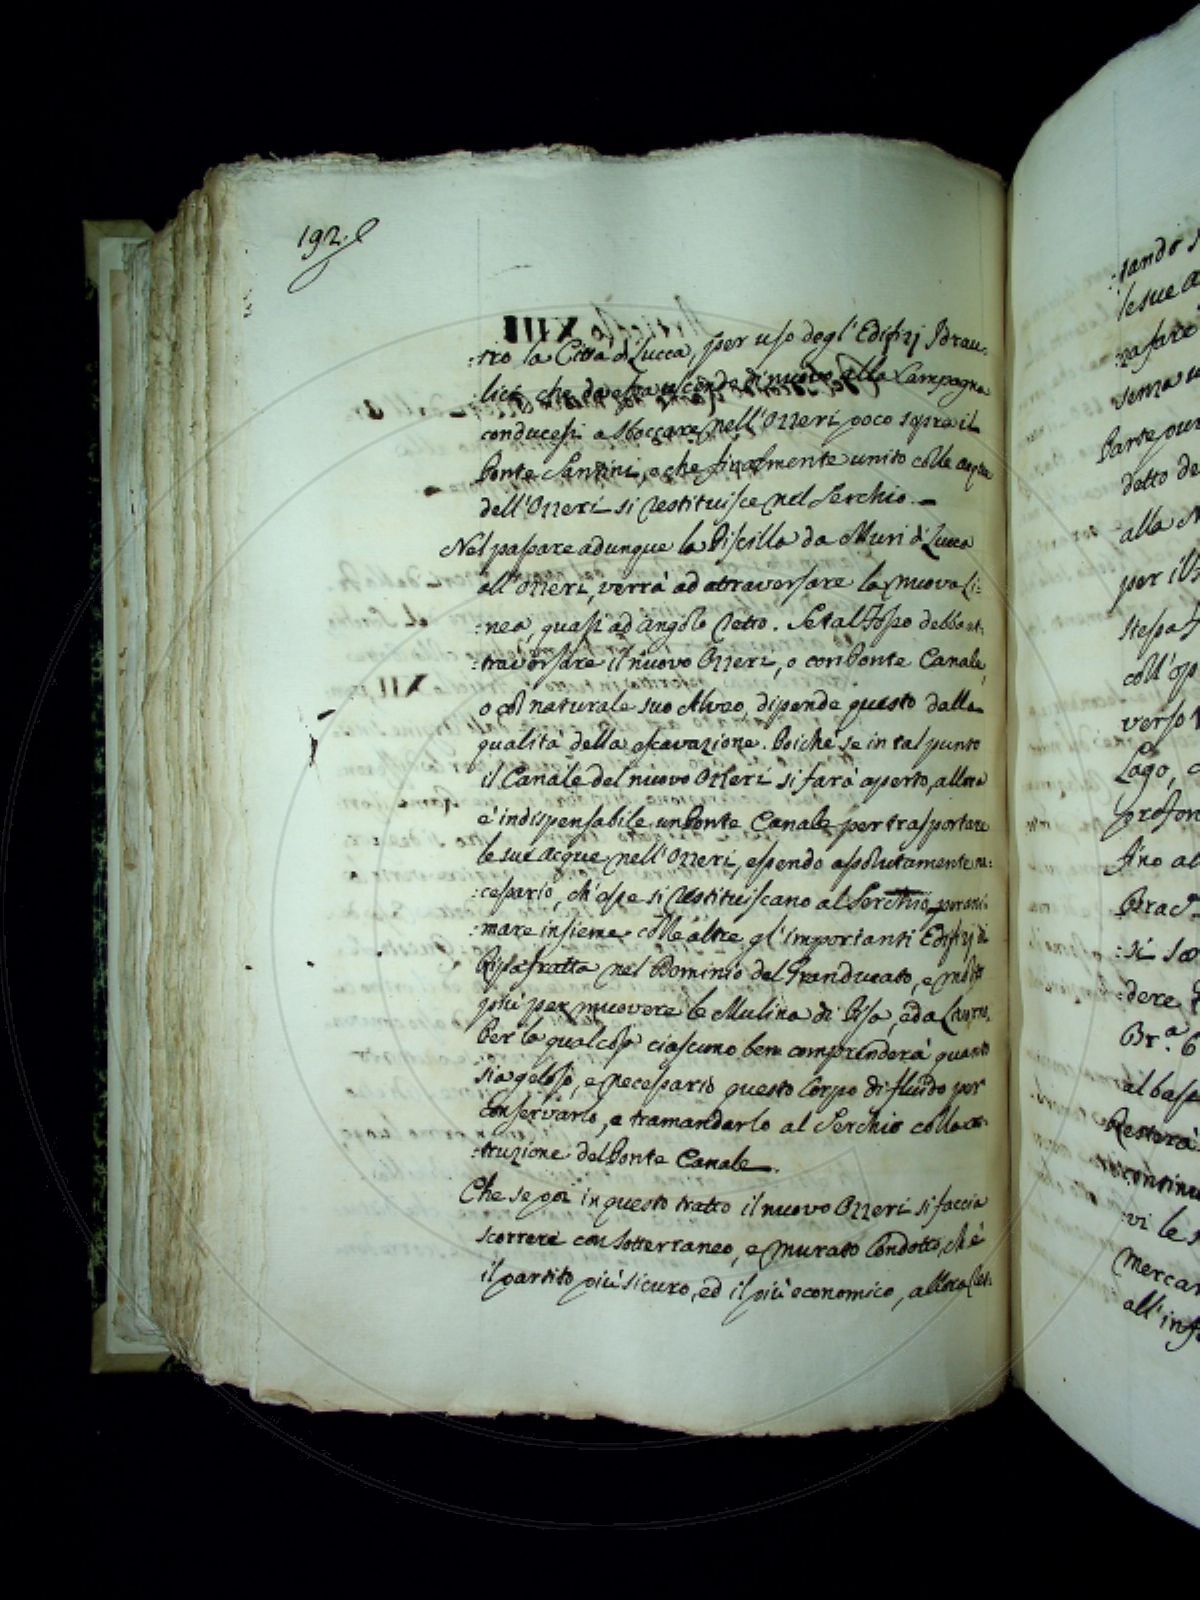 192.
:tro la Città di Lucca, per uso degl' Edifizj Idrau:
:lici che da essa asconde di nuovo alla Campagna
conducesi a sboccare nell'Ozzeri poco sopra il
Ponte Santini, e che finalmente unito colle acque
dell'Ozzeri si restituisce nel Serchio.
Nel passare adunque la Piscilla da Muri di Lucca
all'Ozzeri, verrà ad attraversare la nuova li:
:nea, quasi ad angolo retto. Se tal Fosso debba at:
:traversare il nuovo Ozzeri, o con Ponte Canale,
o col naturale suo Alveo, dipende questo dalla
qualità della escavazione. Poiché se in tal punto
il Canale del nuovo Ozzeri si farà aperto, allora
è indispensabile un Ponte Canale per trasportare
le sue acque nell'Ozzeri, essendo assolutamente ne:
:cessario, ch'esse si restituiscano al Serchio per ani:
:mare insieme colle altre gl'importanti Edifizj di
Ripafratta nel Dominio del Granducato, e molto
più per muovere le Mulina di Pisa, e da
Per la qual cosa ciascuno ben comprenderà quanto
sia geloso, e necessario questo Corpo di fluido per
conservarlo, e tramandarlo al Serchio colla cos:
:truzione del Ponte Canale.
Che se poi in questo tratto il nuovo Ozzeri si faccia
scorrere con sotterraneo, e murato Condotto, ch'è
il partito più sicuro, ed il più economico, allora
:tando
le sue
:va fare
senza
Parte
detto
alla
per il
stessa
coll'
verso
Lago,
fino al
:dere
Br.ª 6
al
Resterà
continu
:vi le
mercan
all'inf